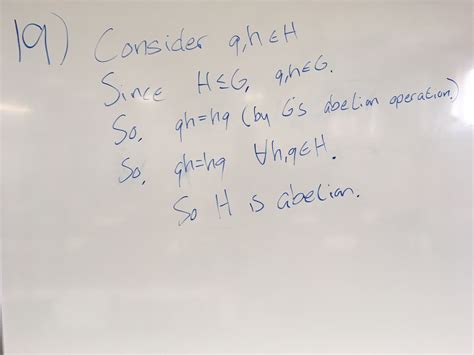 19) Consider g,h∈H
Since H≤G, g,h∈G.
So, gh=hg (by G's abelian operation.)
So, gh=hg ∀h,g∈H.
So H is abelian.